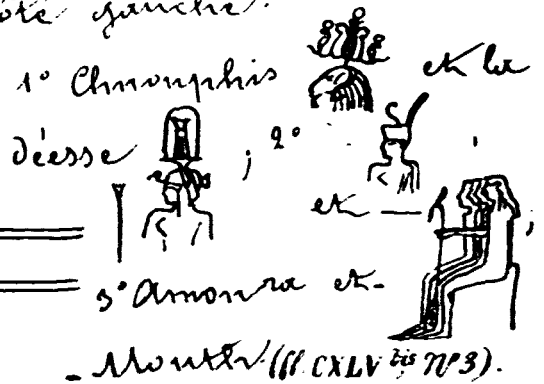 côté gauche.
1° Chnouphis et la
déesse ; 2°
et — ;
3° Amonra et-
- Mouth (Pl. CXLV bis, N° 3).